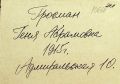 Гросман
Геня Абрамовна
1915г.
Адмиральская 10.